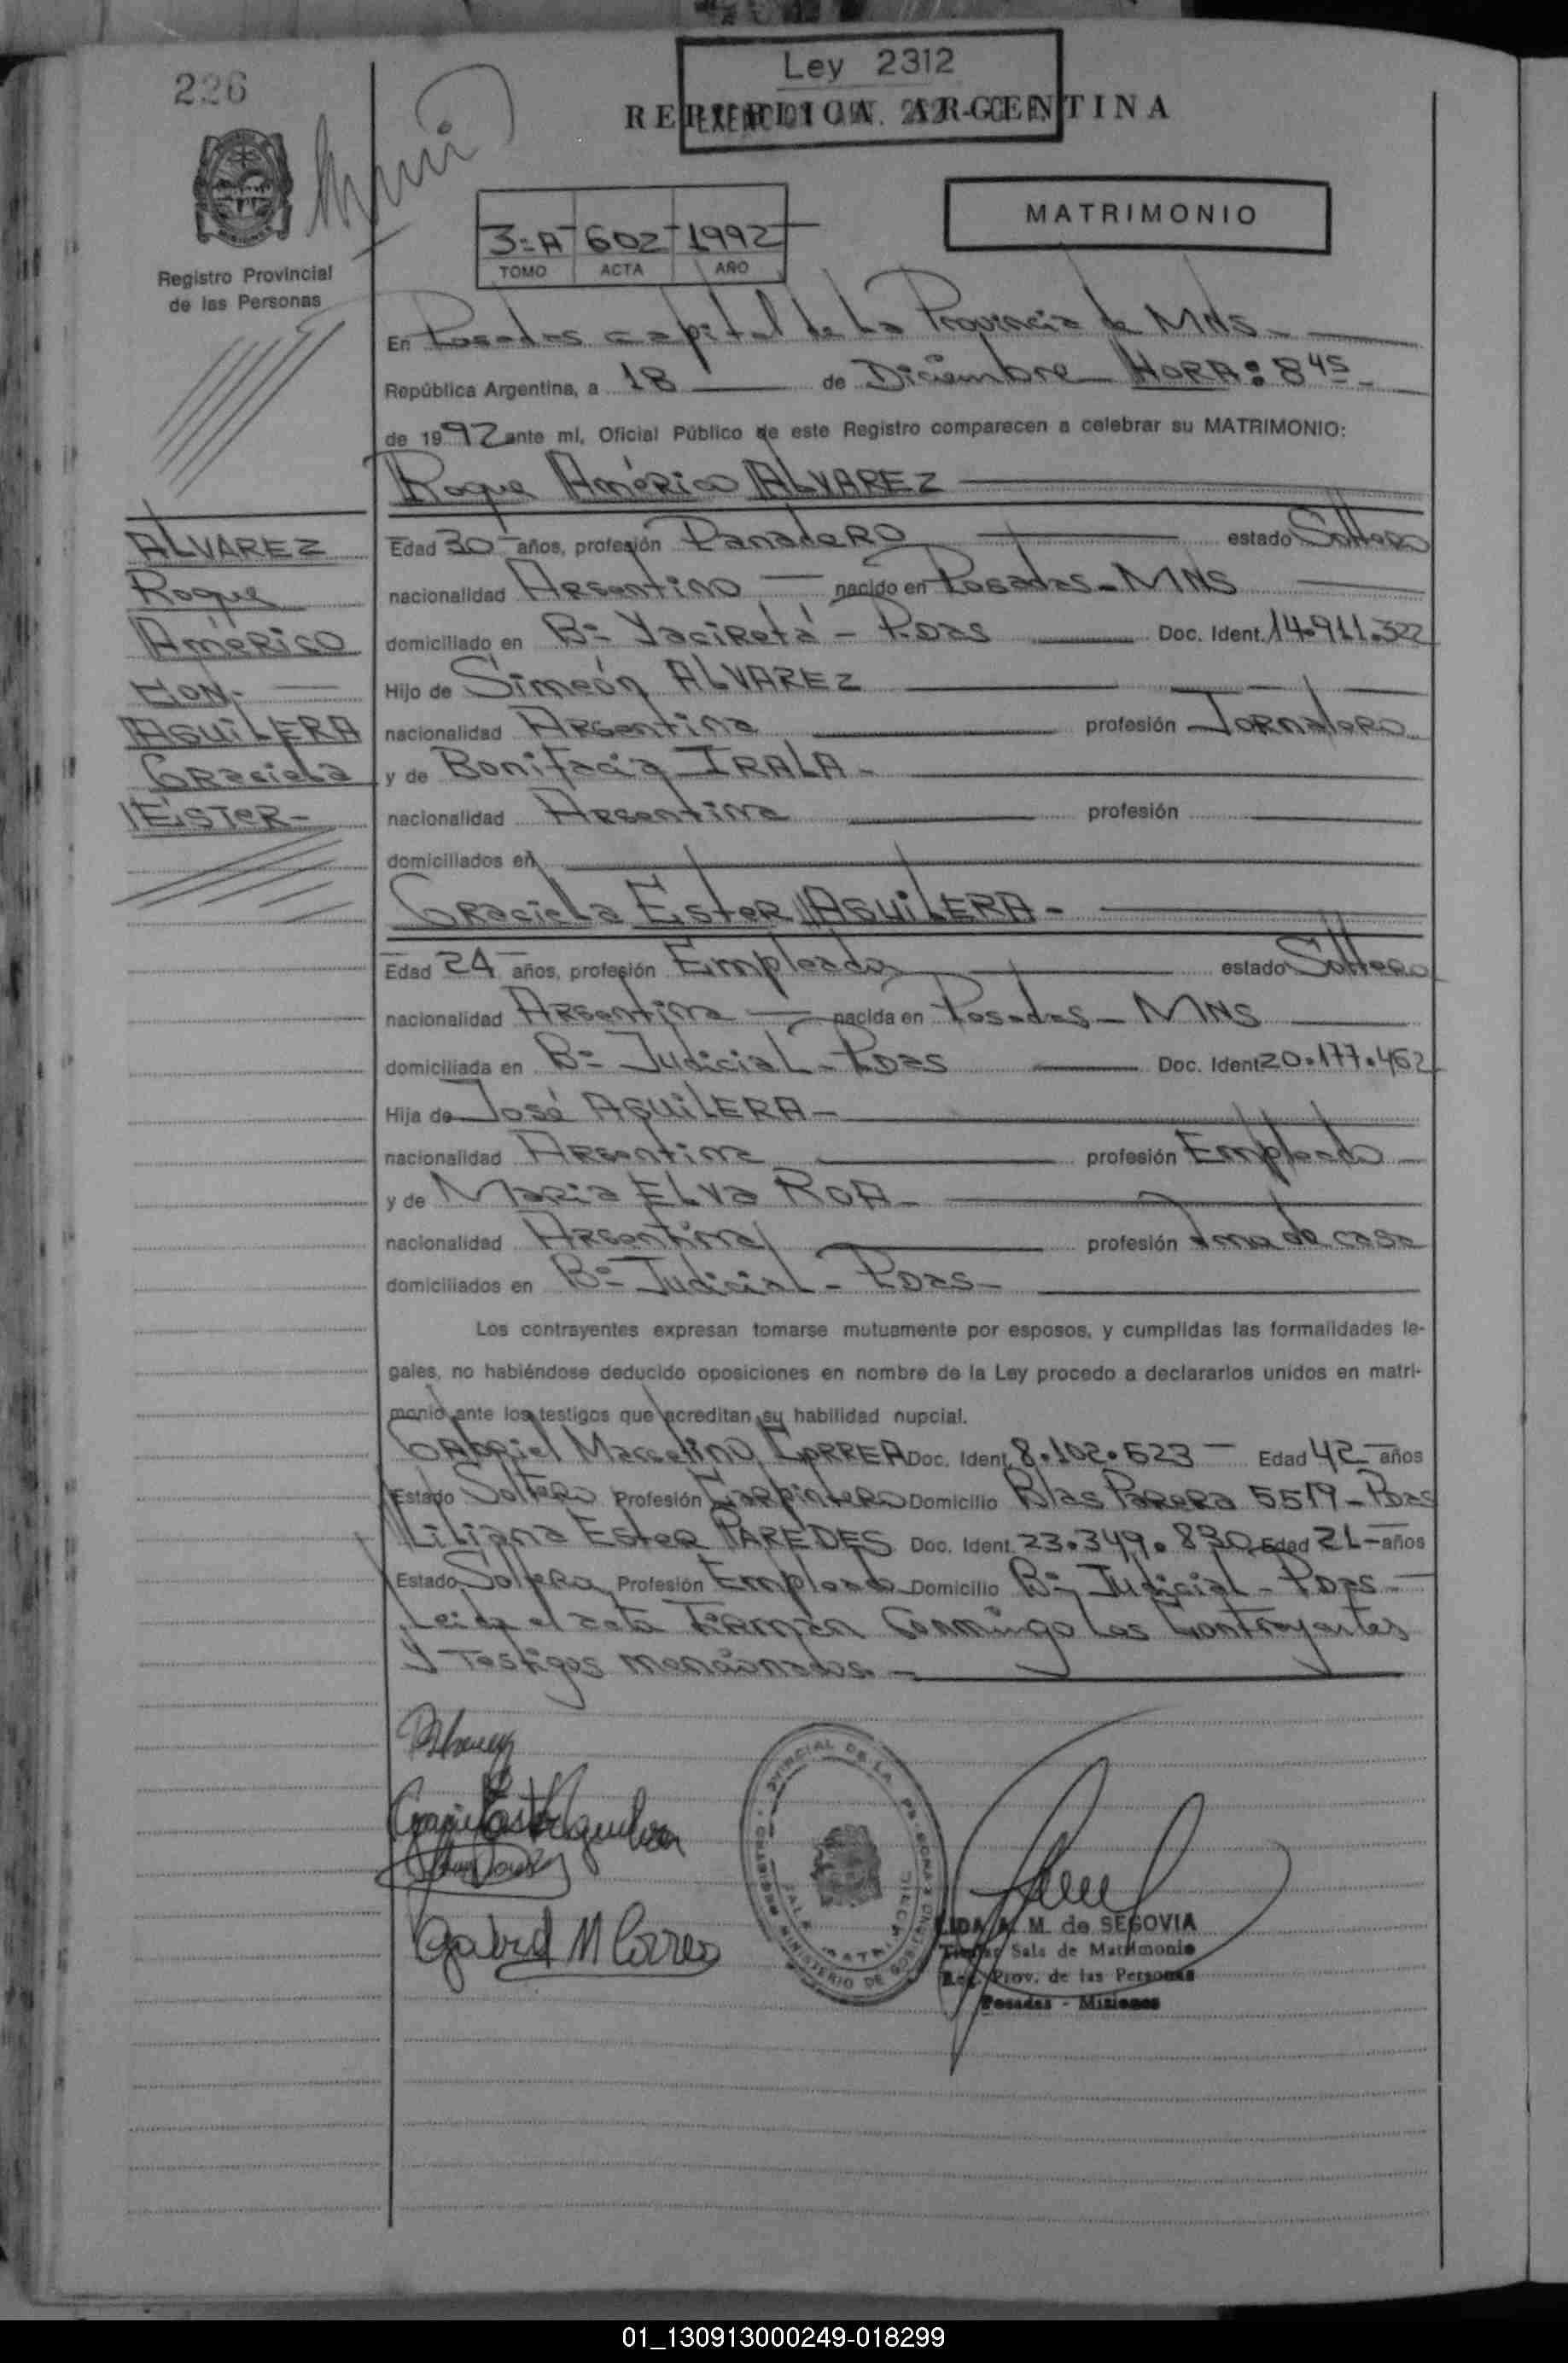 226
Ley 2312
REPUBLICA ARGENTINA
MATRIMONIO
3=A 602 1992
TOMO ACTA AÑO
Registro Provincial
de las Personas
En Posadas capital de la Provincia de MNS-
República Argentina, a 18 de Diciembre HORA: 8 45-
de 1992 ante mi, Oficial Público de este Registro comparecen a celebrar su MATRIMONIO:
Roque Américo ALVAREZ
Edad 30 años, profesión Panadero estado Soltero
nacionalidad Argentino nacido en Posadas-MNS
domiciliado en Bº Yacireta - Pdas Doc. Ident. 14.911.322
Hijo de Simeón ALVAREZ
nacionalidad Argentina profesión Jornalero
y de Bonifacia IRALA-
nacionalidad Argentina profesión
domiciliados en
Graciela Ester AGUILERA-
Edad 24 años, profesión Empleada estado Soltera
nacionalidad Argentina nacida en Posadas- MNS
domiciliada en Bº Judicial - Pdas Doc. Ident 20.177.462
Hija de José AGUILERA-
nacionalidad Argentina profesión Empleado
y de Maria Elva ROA-
nacionalidad Argentina profesión Ama de casa
domiciliados en Bº Judicial - Pdas-
Los contrayentes expresan tomarse mutuamente por esposos, y cumplidas las formalidades le-
gales, no habiéndose deducido oposiciones en nombre de la Ley procedo a declararlos unidos en matri-
monio ante los testigos que acreditan su habilidad nupcial.
Gabriel Marcelino CORREA Doc. Ident. 8.102.523 Edad 42 años
Estado Soltero Profesión Carpintero Domicilio Blas Parera 5519-Pdas
Liliana Ester PAREDES Doc. Ident. 23.349.830 Edad 21-años
Estado Soltera Profesión Empleada Domicilio Bº Judicial - Pdas-
Leida el acta Firman Conmingo los Contrayentes
y Testigos mencionados.-
ALVAREZ
Roque
Américo
CON-
AGUILERA
Graciela
ESTER-
Gabriel M Correa
LIDA A. M. de SEGOVIA
Titular Sala de Matrimonio
Reg. Prov. de las Personas
Posadas - Misiones
01_130913000249-018299